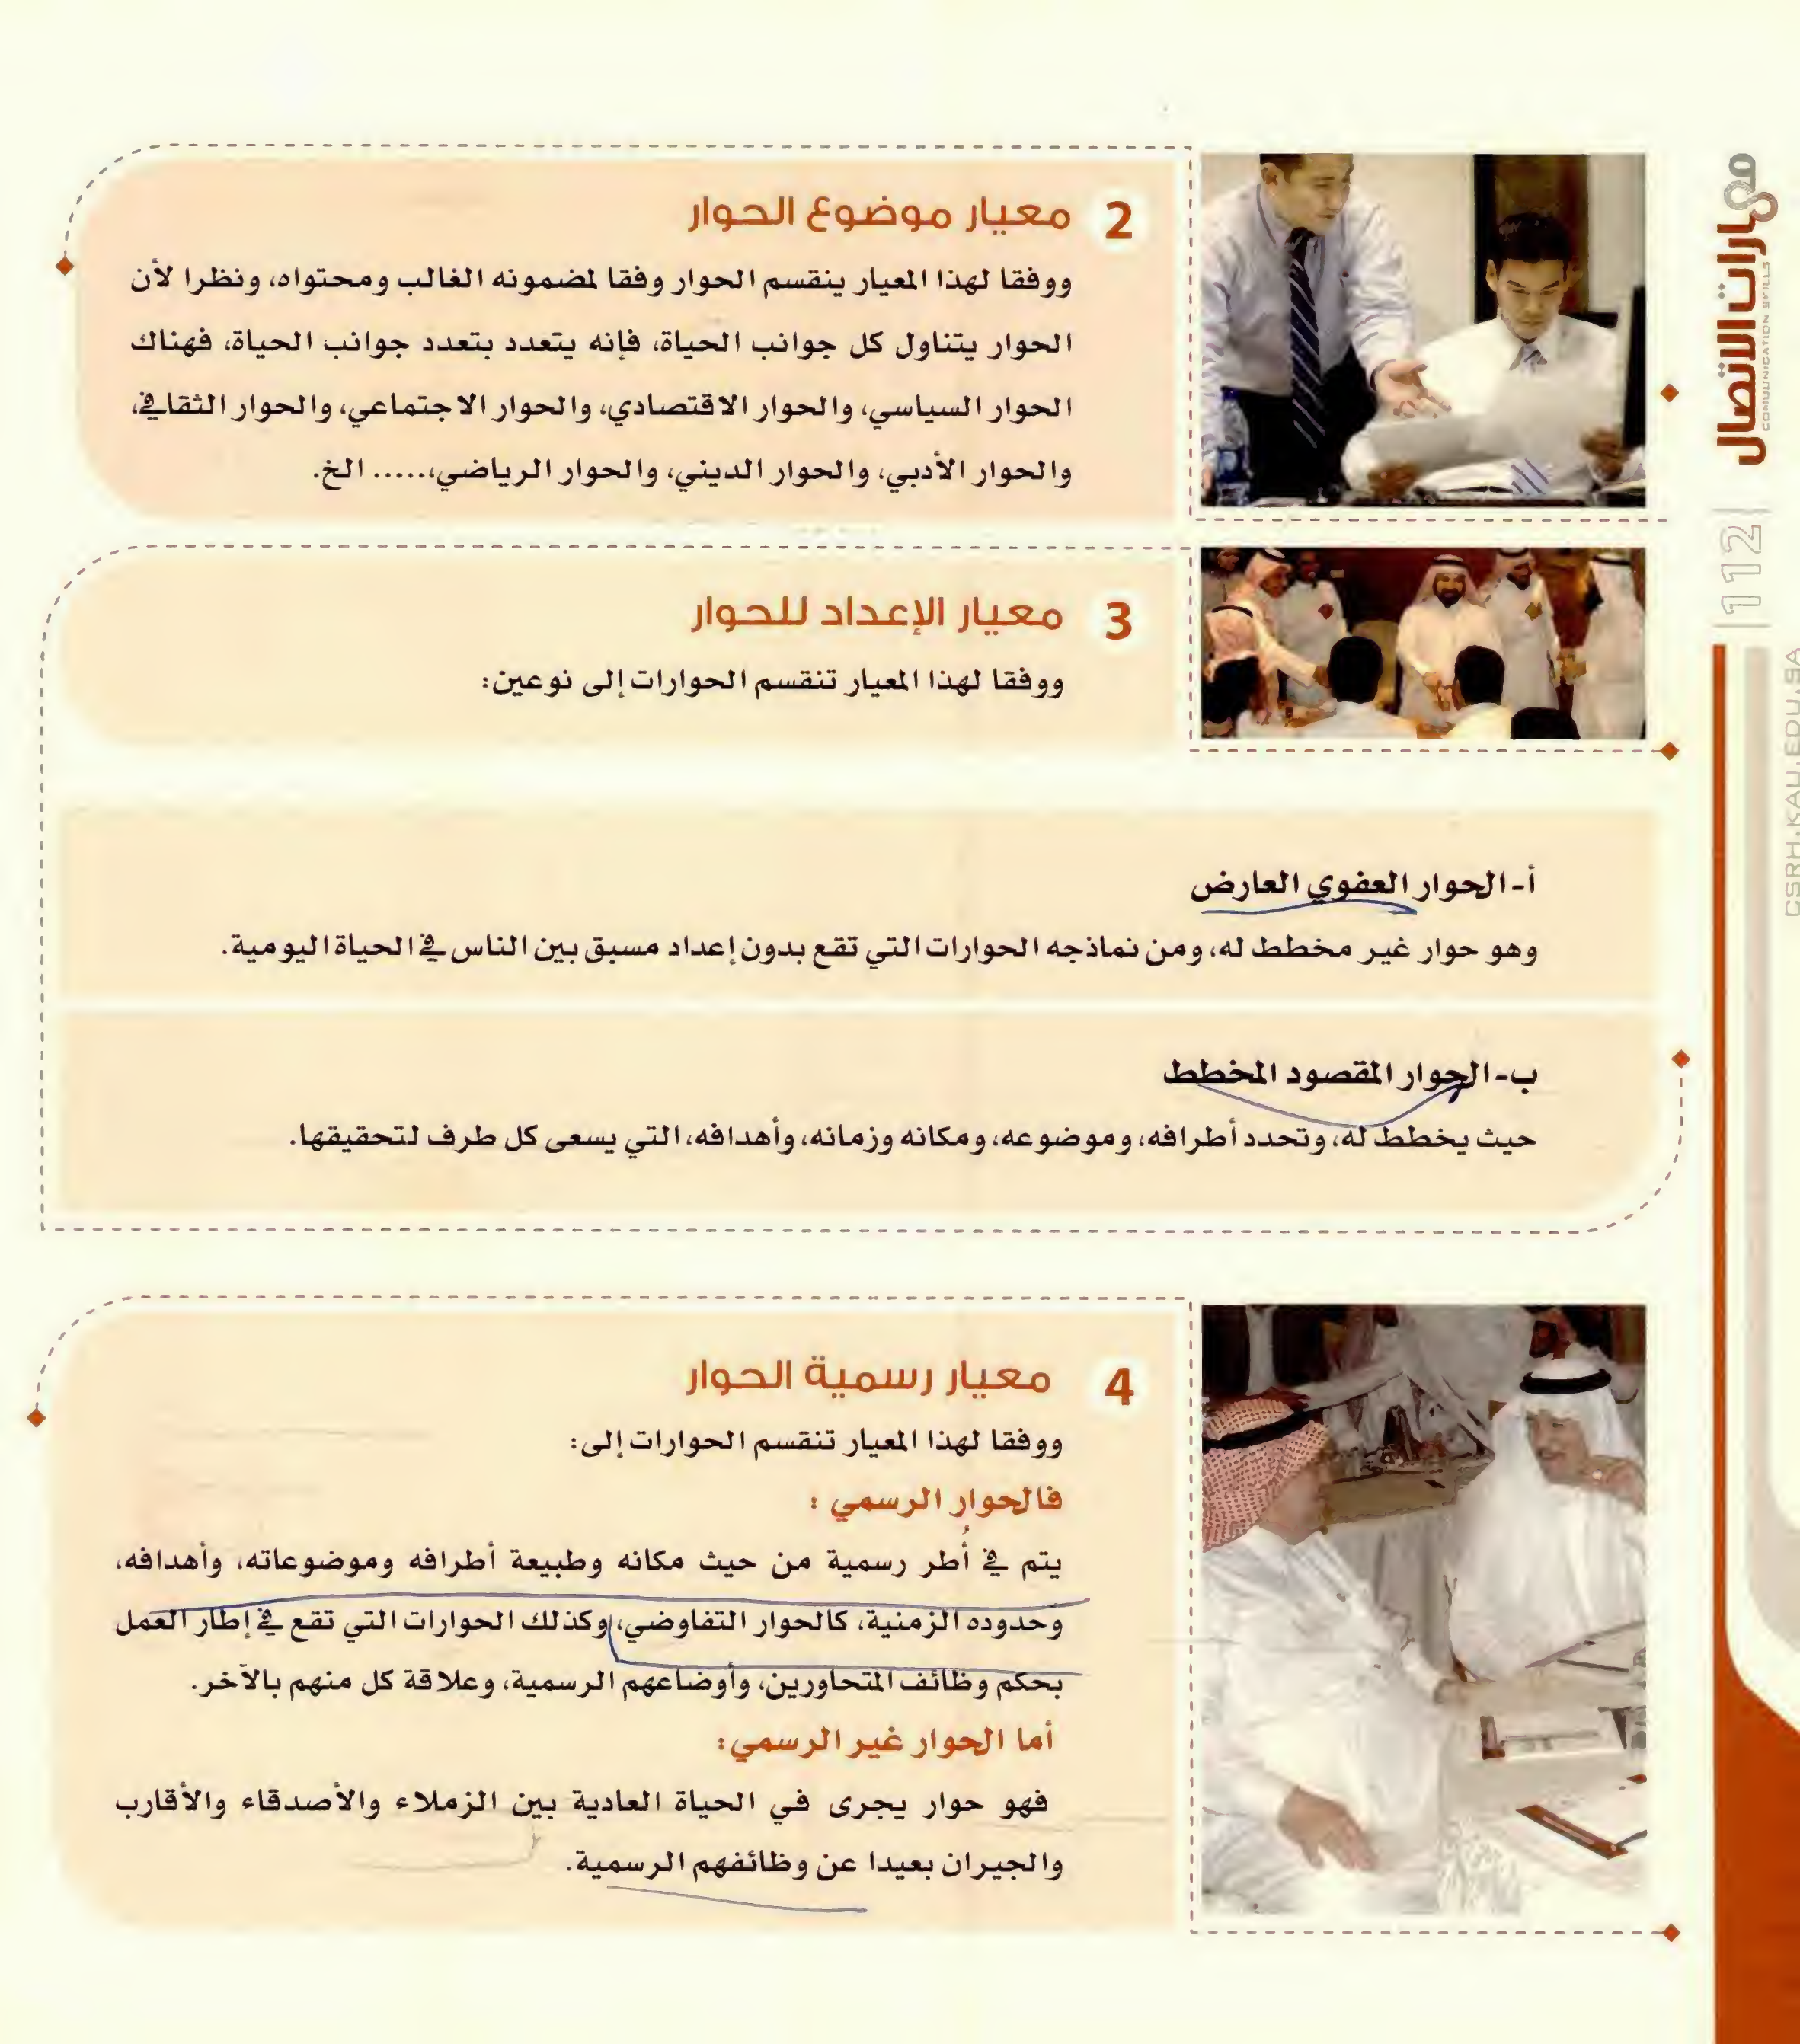 مهارات الاتصال
COMUNICATION SKILLS
112
CSRH.KAU.EDU.SA
2 معيار موضوع الحوار
ووفقا لهذا المعيار ينقسم الحوار وفقا لمضمونه الغالب ومحتواه، ونظرا لأن
الحوار يتناول كل جوانب الحياة، فإنه يتعدد بتعدد جوانب الحياة، فهناك
الحوار السياسي، والحوار الاقتصادي، والحوار الاجتماعي، والحوار الثقافي،
والحوار الأدبي، والحوار الديني، والحوار الرياضي،..... الخ.
3 معيار الإعداد للحوار
ووفقا لهذا المعيار تنقسم الحوارات إلى نوعين:
أ- الحوار العفوي العارض
وهو حوار غير مخطط له، ومن نماذجه الحوارات التي تقع بدون إعداد مسبق بين الناس في الحياة اليومية.
ب- الحوار المقصود المخطط
حيث يخطط له، وتحدد أطرافه، وموضوعه، ومكانه وزمانه، وأهدافه، التي يسعى كل طرف لتحقيقها.
4 معيار رسمية الحوار
ووفقا لهذا المعيار تنقسم الحوارات إلى:
فالحوار الرسمي :
يتم في أُطر رسمية من حيث مكانه وطبيعة أطرافه وموضوعاته، وأهدافه،
وحدوده الزمنية، كالحوار التفاوضي، وكذلك الحوارات التي تقع في إطار العمل
بحكم وظائف المتحاورين، وأوضاعهم الرسمية، وعلاقة كل منهم بالآخر.
أما الحوار غير الرسمي:
فهو حوار يجرى في الحياة العادية بين الزملاء والأصدقاء والأقارب
والجيران بعيدا عن وظائفهم الرسمية.